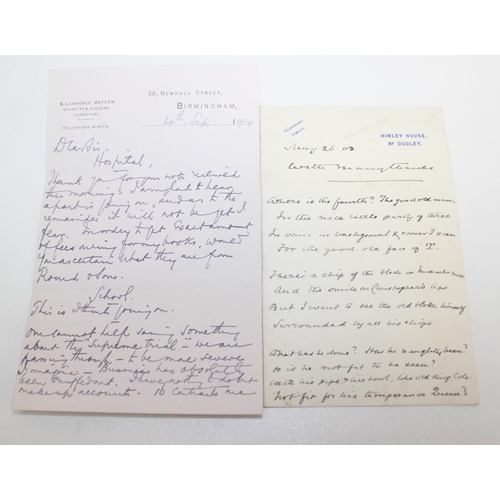 G. LAWRENCE MATSON,
QUANTITY & BUILDING
SURVEYOR.
TELEPHONE
58, NEWHALL STREET,
BIRMINGHAM,
4th Sep 1914
Dear Sir,
Hospital,
Thank you for your note received
this morning. I am glad to hear
apart is going on, and as to the
remainder it will not be yet I
fear. In order to get exact amount
of fees owing for my books, would
you ascertain what they are from
Round & Sons.
School.
This is I think going on.
One cannot help saying something
about the Supreme trial – we are
passing through – to be more severe
I imagine – Business has absolutely
been snuffed out. I have not
make up account. 10 contracts are
TELEGRAMS,
HIMLEY.
HIMLEY HOUSE,
Nr DUDLEY.
Aug 26 03
With many thanks
Where is the fourth? The good old man,
In this nice little party of three
In this background & corner I scan
For the good old face of T.
There's a chip of the block in
And the smile on Christopher's lips
But I want to see the old bloke himself
Surrounded by all his chips
What has he done? Has he naughty been?
Or is he not fit to be seen?
With his pipe & his bowl, like old King Cole
Not fit for his temperance Queen?